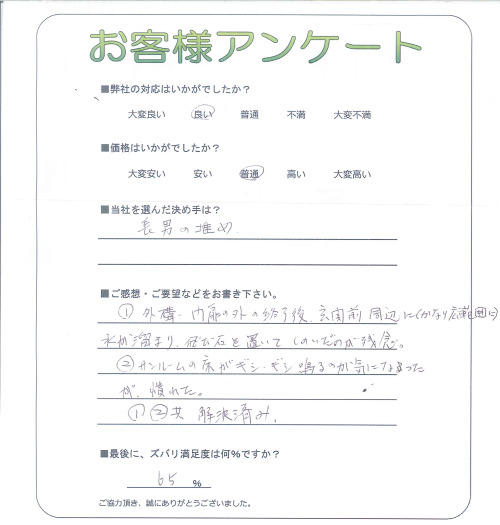 お客様アンケート
■弊社の対応はいかがでしたか？
大変良い 良い 普通 不満 大変不満
■価格はいかがでしたか？
大変安い 安い 普通 高い 大変高い
■当社を選んだ決め手は？
長男の推め
■ご感想・ご要望などをお書き下さい。
① 外構、内部の外の終了後、玄関前周辺に(かなり広範囲に)
水が溜まり、 石を置いてしのいだのが残念。
②サンルームの床がギシ・ギシ鳴るのが気になるった
が、慣れた。
①②共 解決済み。
■最後に、ズバリ満足度は何%ですか？
65 %
ご協力頂き、誠にありがとうございました。